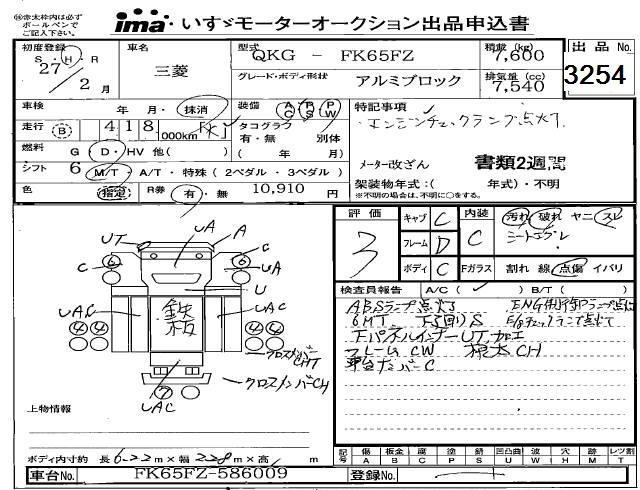 ※赤太枠内は必ず
ボールペンで
ご記入下さい。
ima・いすゞモーターオークション出品申込書
初度登録 車名 型式 QKG - FK65FZ 積載(kg) 7,600 出品No.
S・H・R 27/2月 三菱 グレード・ボディ形状 アルミブロック 排気量(cc) 7,540 3254
車検 年 月・抹消 装備 A/C P/S P/W 特記事項
エンジンチェックランプ点灯
走行 (B) 418,000km タコグラフ 有・無 別体
燃料 G D・HV 他( ) ( 年 月) メーター改ざん 書類2週間
シフト 6 M/T・A/T・特殊(2ペダル・3ペダル) 架装物年式:( 年式)・不明
色 指定 R券 有・無 10,910 円 ※不明の場合は、不明に○をする。
評価 3
キャブ C 内装 C 汚れ 破れ ヤニ スレ
フレーム D
ボディ C Fガラス 割れ 線 点傷 イバリ
UT UA A
C 6 6 G
UA
U
UAC 鉄板 UAC
4 4 4 4
クロスメンバーCHT
クロスメンバーCH
7
UAC
検査員報告 A/C( ) B/T( )
ABSランプ点灯
6MT 下回りS
UT 加工
フレームCW CH
ナンバーC
上物情報
ボディ内寸約 長 622 m×幅 228 m×高 m
記号 傷A 板金B 腐C 塗P 錆S 凹凸曲U 波W 穴H 跡M レツT
車台No. FK65FZ-586009 登録No.